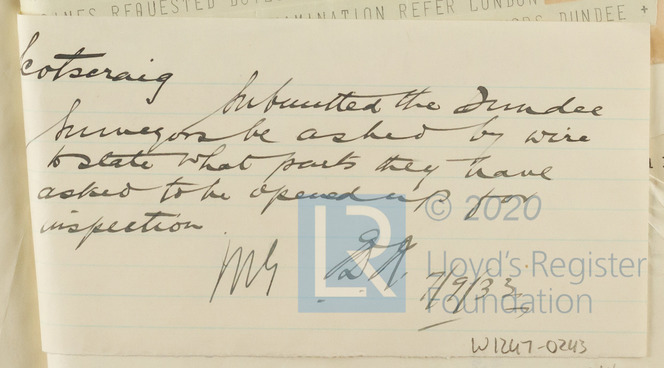 REQUESTED
MINATION REFER LONDON
DUNDEE +
Scotscraig
Submitted the Dundee
Surveyors be asked by wire
to state what parts they have
asked to be opened up for
inspection.
7/9/33
© 2020
LR
Lloyd's Register
Foundation
W1247-0243